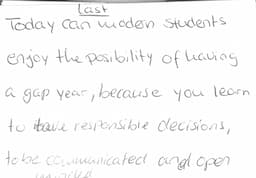 Last
Today can modern students
enjoy the posibility of having
a gap year, because you learn
to have responsible decisions,
to be communicated and open